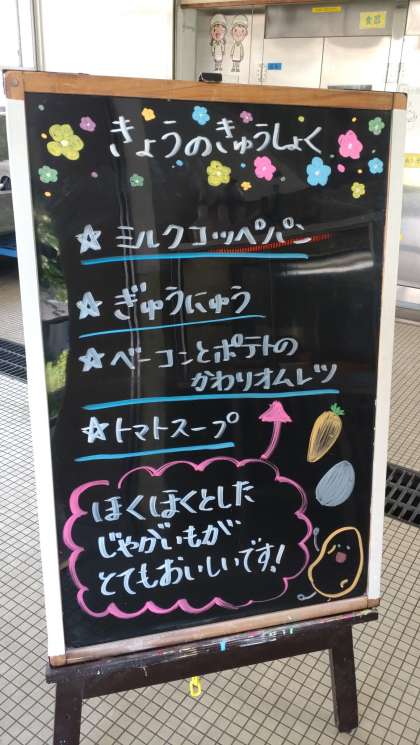 食器
きょうのきゅうしょく
☆ ミルクコッペパン
☆ ぎゅうにゅう
☆ ベーコンとポテトの
かわりオムレツ
☆ トマトスープ
ほくほくとした
じゃがいもが
とてもおいしいです!